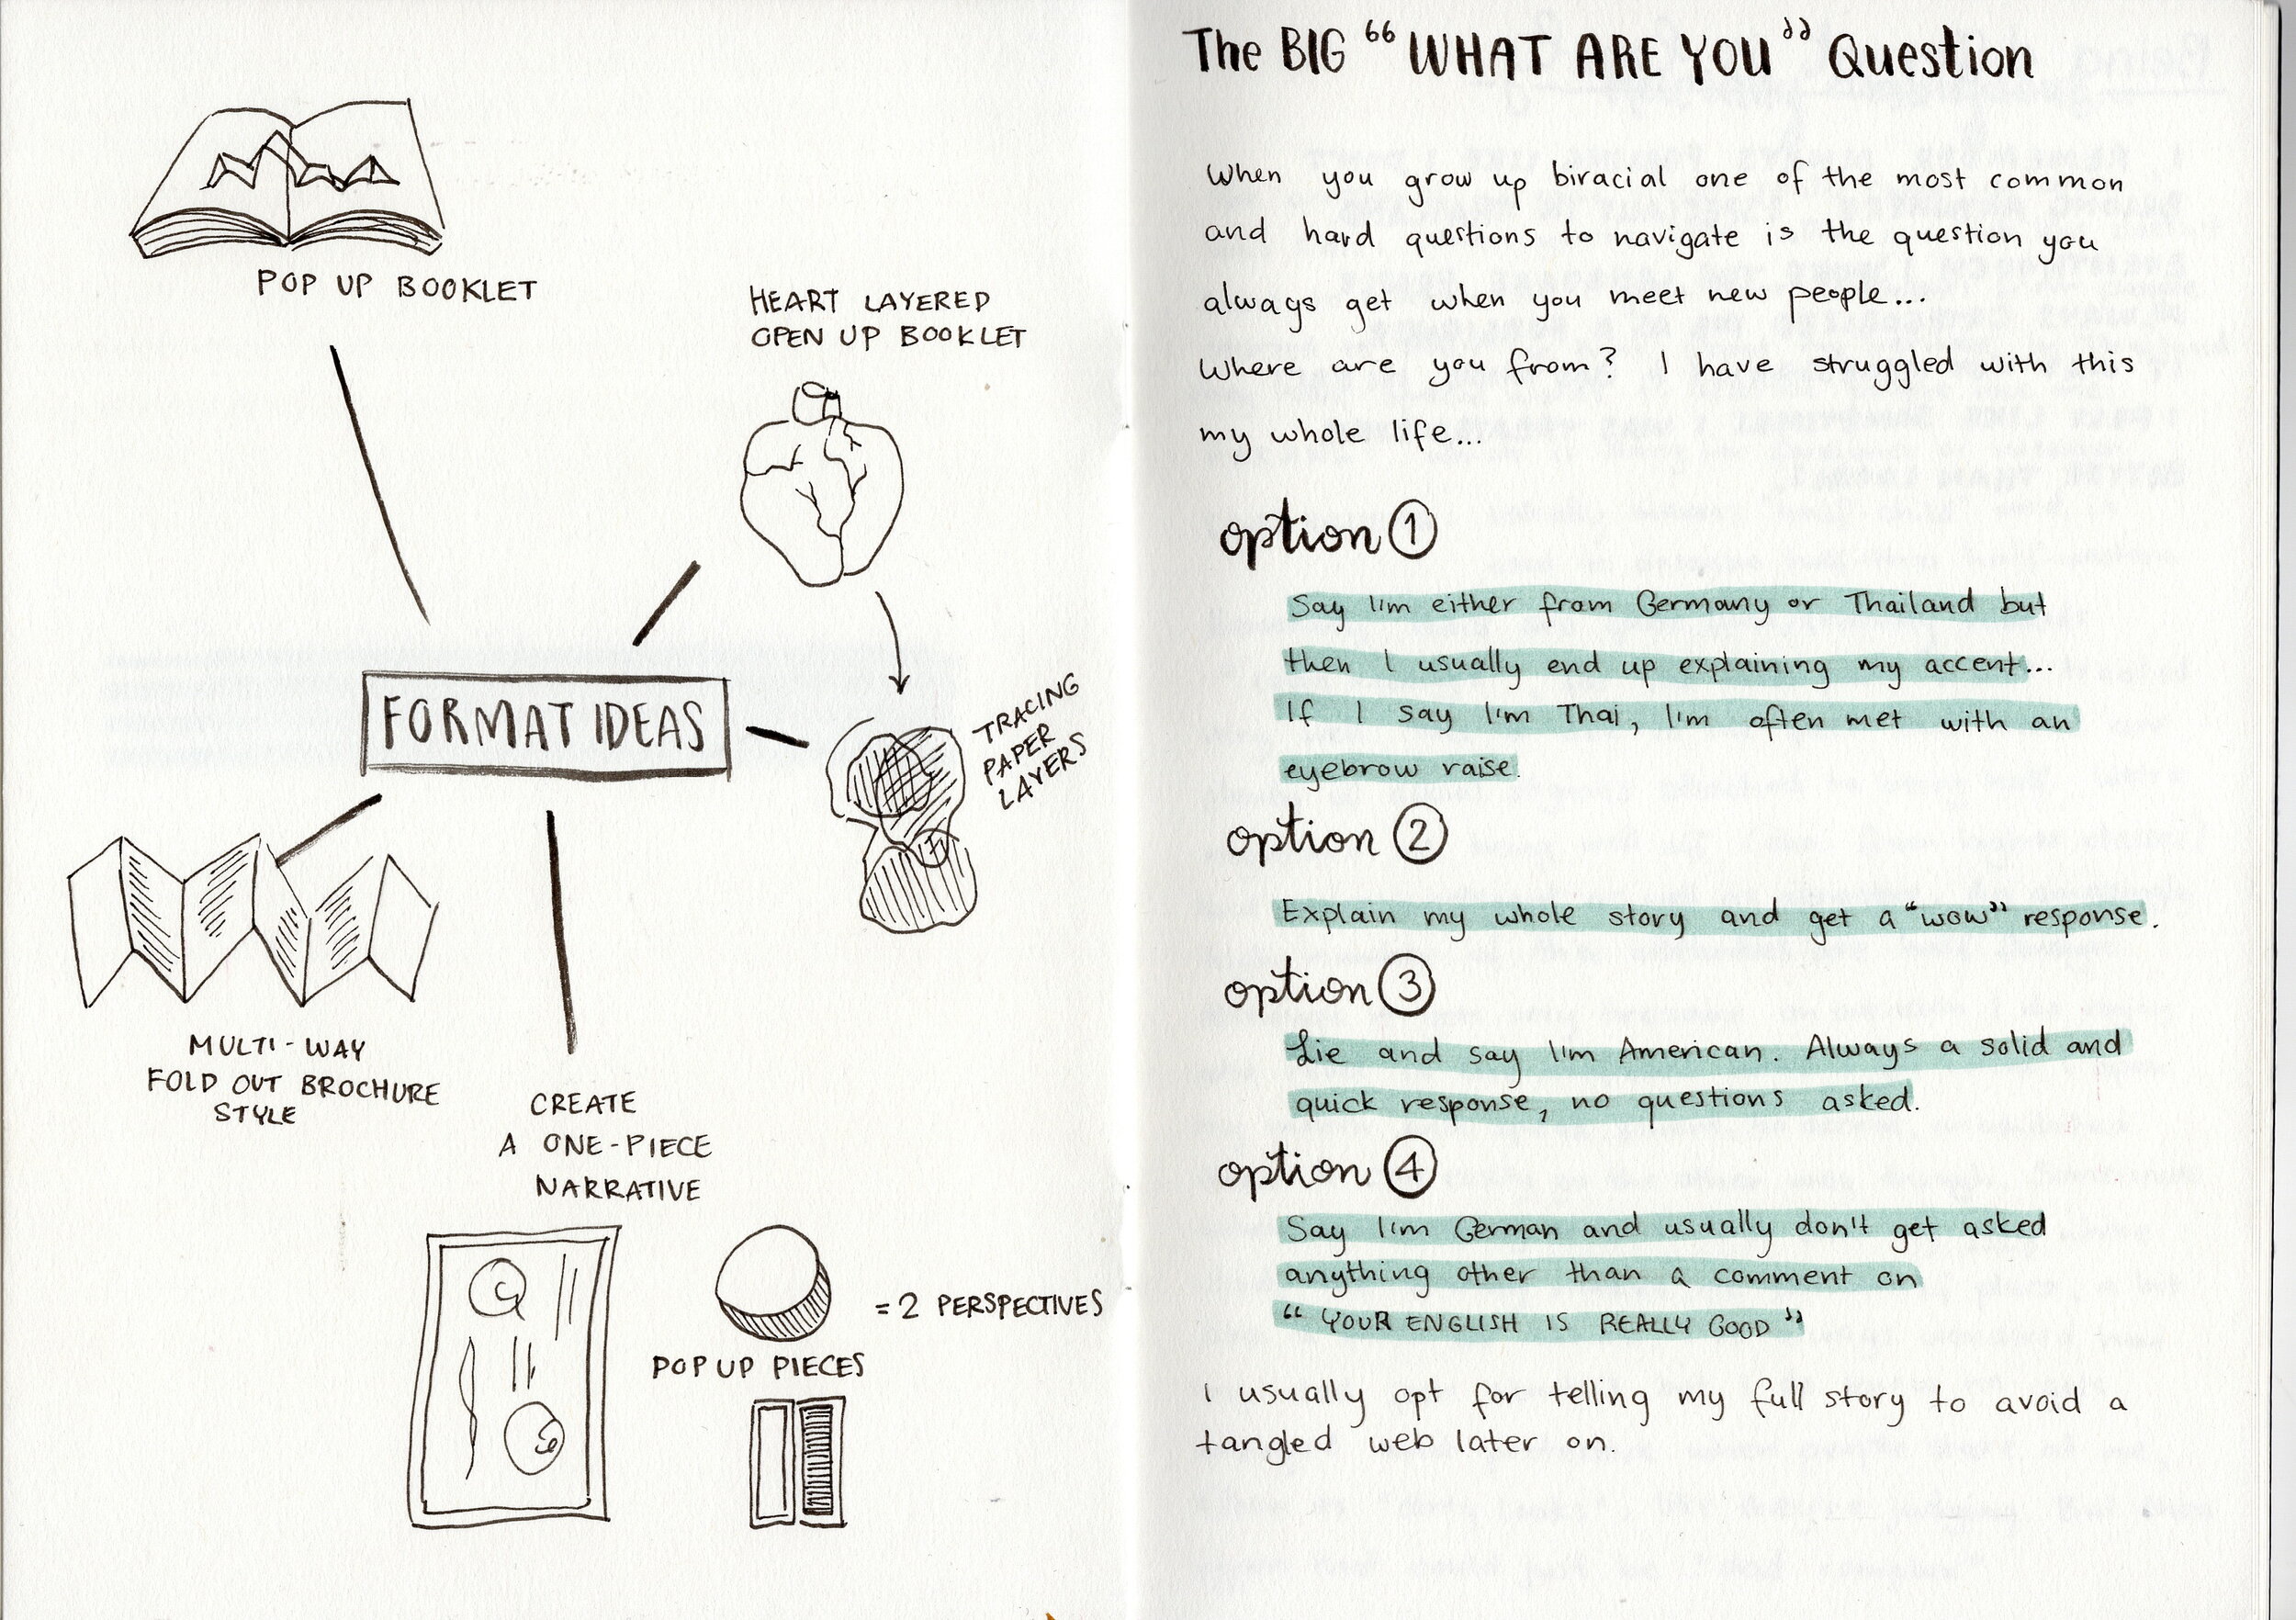 POP UP BOOKLET
HEART LAYERED
OPEN UP BOOKLET
FORMAT IDEAS
TRACING
PAPER
LAYERS
MULTI-WAY
FOLD OUT BROCHURE
STYLE
CREATE
A ONE-PIECE
NARRATIVE
= 2 PERSPECTIVES
POP UP PIECES
The BIG “WHAT ARE YOU” Question
When you grow up biracial one of the most common
and hard questions to navigate is the question you
always get when you meet new people...
Where are you from? I have struggled with this
my whole life...
option 1
Say I'm either from Germany or Thailand but
then I usually end up explaining my accent...
If I say I'm Thai, I'm often met with an
eyebrow raise.
option 2
Explain my whole story and get a “wow” response.
option 3
Lie and say I'm American. Always a solid and
quick response, no questions asked.
option 4
Say I'm German and usually don't get asked
anything other than a comment on
“YOUR ENGLISH IS REALLY GOOD”
I usually opt for telling my full story to avoid a
tangled web later on.